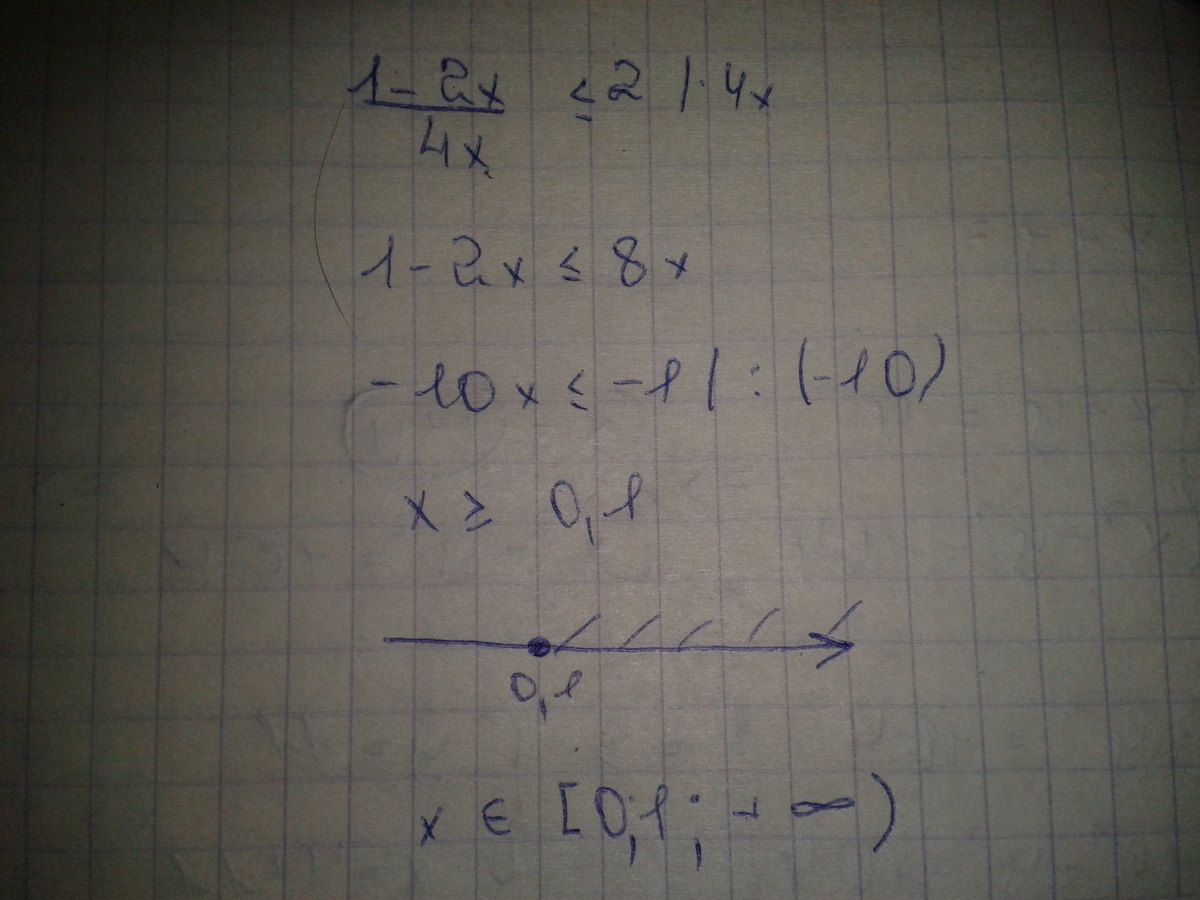 1 - 2x / 4x ≤ 2 | · 4x
1 - 2x ≤ 8x
-10x ≤ -1 | : (-10)
x ≥ 0,1
0,1
x ∈ [0,1 ; + ∞)